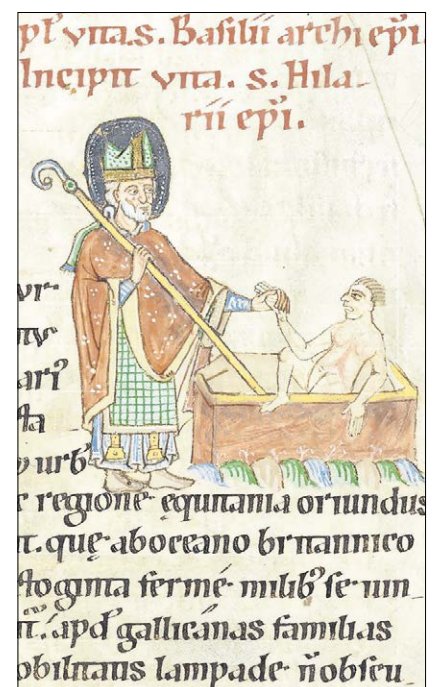 pł vita.s. Basilii archiepi.
Incipit vita. s. Hila-
rii epi.
urb
regione equitania oriundus
t. quę aboceano britannico
ginta ferme milib' se uin
apd' gallicanas familias
obilitatis lampade ñ obscu